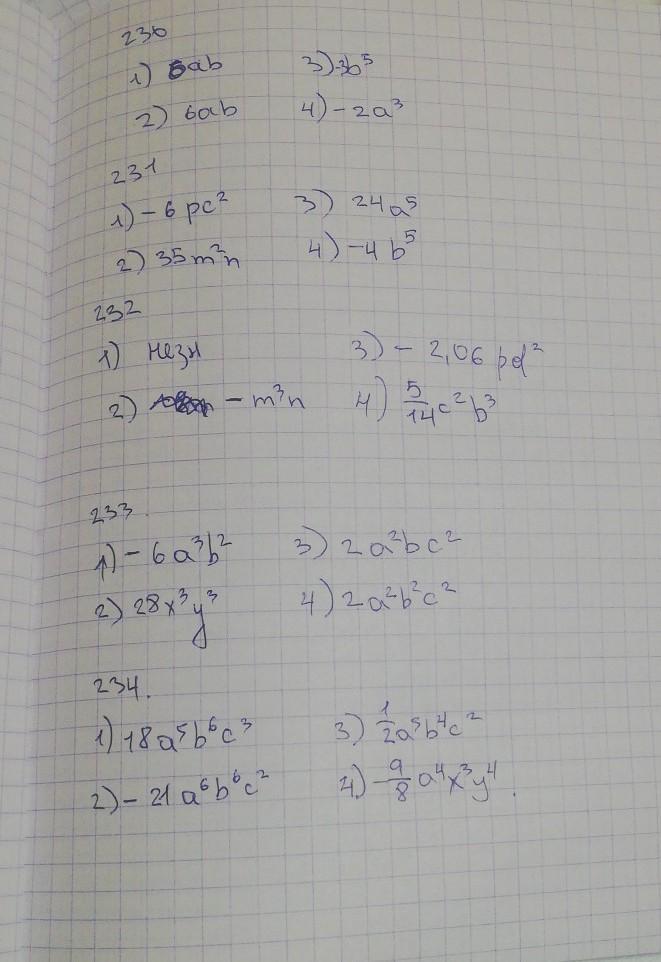 230
1) 5ab 3) -3b⁵
2) 6ab 4) -2a³
231
1) -6pc² 3) 24a⁵
2) 35m²n 4) -4b⁵
232
1) незн 3) -2,06pd²
2) -m³n 4) 5/14 c²b³
233.
1) -6a³b² 3) 2a²bc²
2) 28x³y³ 4) 2a²b²c²
234.
1) 18a⁵b⁶c³ 3) 1/2 a⁵b⁴c²
2) -21a⁶b⁶c² 4) -9/8 a⁴x³y⁴.